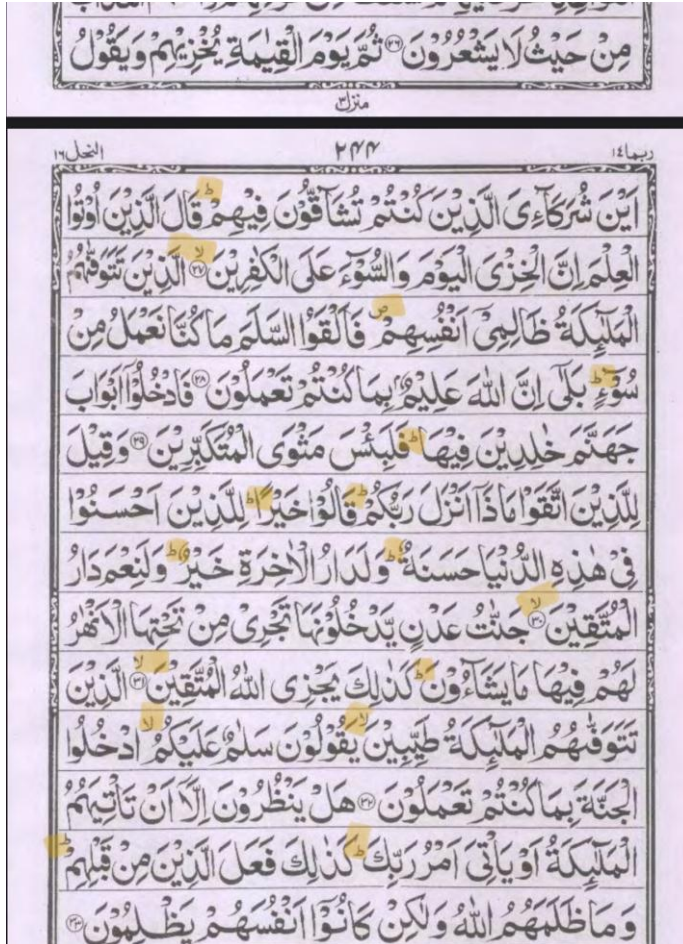 مِنْ حَيْثُ لَا يَشْعُرُوْنَ ﴿۲۶﴾ ثُمَّ يَوْمَ الْقِيٰمَةِ يُخْزِيْهِمْ وَيَقُوْلُ
منزل ٣
ربما ١٤ ٢٤٤ النحل ١٦
اَيْنَ شُرَكَآءِيَ الَّذِيْنَ كُنْتُمْ تُشَآقُّوْنَ فِيْهِمْ ؕ قَالَ الَّذِيْنَ اُوْتُوا
الْعِلْمَ اِنَّ الْخِزْيَ الْيَوْمَ وَالسُّوْٓءَ عَلَى الْكٰفِرِيْنَ ۙ﴿۲۷﴾ الَّذِيْنَ تَتَوَفّٰىهُمُ
الْمَلٰٓئِكَةُ ظَالِمِيْٓ اَنْفُسِهِمْ ۪ فَاَلْقَوُا السَّلَمَ مَا كُنَّا نَعْمَلُ مِنْ
سُوْٓءٍ ؕ بَلٰٓى اِنَّ اللّٰهَ عَلِيْمٌۢ بِمَا كُنْتُمْ تَعْمَلُوْنَ ﴿۲۸﴾ فَادْخُلُوْٓا اَبْوَابَ
جَهَنَّمَ خٰلِدِيْنَ فِيْهَا ؕ فَلَبِئْسَ مَثْوَى الْمُتَكَبِّرِيْنَ ﴿۲۹﴾ وَقِيْلَ
لِلَّذِيْنَ اتَّقَوْا مَاذَآ اَنْزَلَ رَبُّكُمْ ؕ قَالُوْا خَيْرًا ؕ لِلَّذِيْنَ اَحْسَنُوْا
فِيْ هٰذِهِ الدُّنْيَا حَسَنَةٌ ؕ وَلَدَارُ الْاٰخِرَةِ خَيْرٌ ؕ وَلَنِعْمَ دَارُ
الْمُتَّقِيْنَ ۙ﴿۳۰﴾ جَنّٰتُ عَدْنٍ يَّدْخُلُوْنَهَا تَجْرِيْ مِنْ تَحْتِهَا الْاَنْهٰرُ
لَهُمْ فِيْهَا مَا يَشَآءُوْنَ ؕ كَذٰلِكَ يَجْزِي اللّٰهُ الْمُتَّقِيْنَ ۙ﴿۳۱﴾ الَّذِيْنَ
تَتَوَفّٰىهُمُ الْمَلٰٓئِكَةُ طَيِّبِيْنَ ۙ يَقُوْلُوْنَ سَلٰمٌ عَلَيْكُمُ ۙ ادْخُلُوا
الْجَنَّةَ بِمَا كُنْتُمْ تَعْمَلُوْنَ ﴿۳۲﴾ هَلْ يَنْظُرُوْنَ اِلَّآ اَنْ تَاْتِيَهُمُ
الْمَلٰٓئِكَةُ اَوْ يَاْتِيَ اَمْرُ رَبِّكَ ؕ كَذٰلِكَ فَعَلَ الَّذِيْنَ مِنْ قَبْلِهِمْ ؕ
وَمَا ظَلَمَهُمُ اللّٰهُ وَلٰكِنْ كَانُوْٓا اَنْفُسَهُمْ يَظْلِمُوْنَ ﴿۳۳﴾